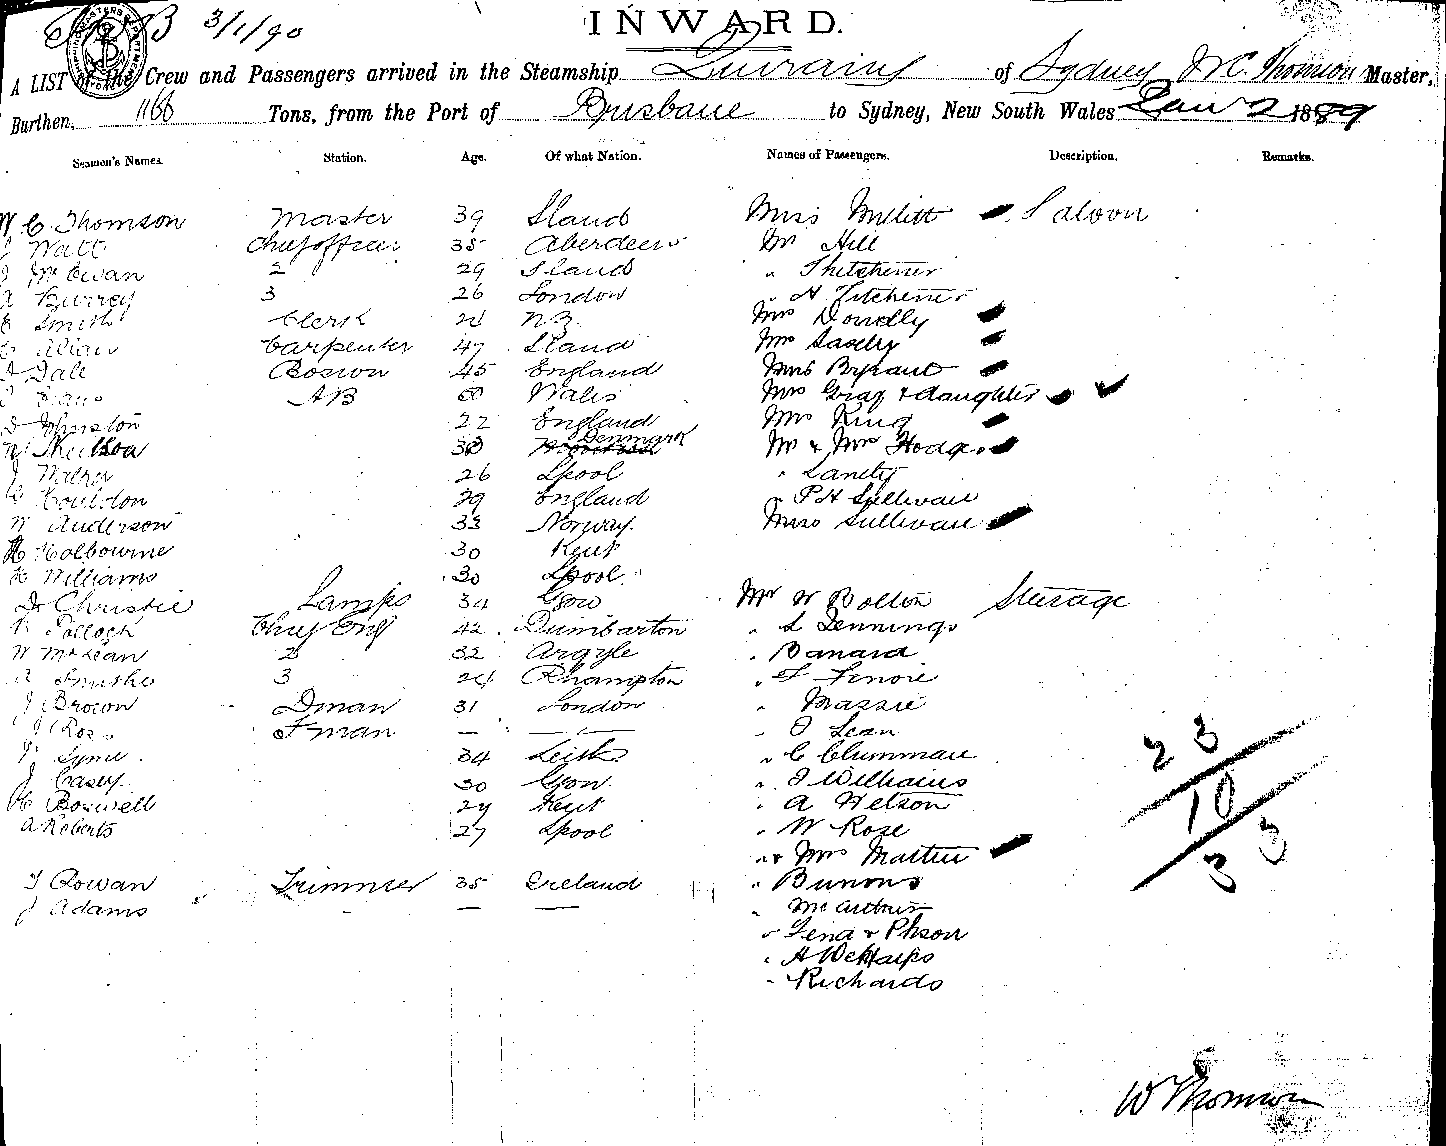 3/1/90
INWARD.
A LIST of the Crew and Passengers arrived in the Steamship of Sydney W.C. Thomson Master,
Burthen, 1166 Tons, from the Port of Brisbane to Sydney, New South Wales Jan 2 1889
Seamen's Names. Station. Age. Of what Nation. Names of Passengers. Description. Remarks.
W C Thomson Master 39 Sland Miss Saloon
J Watt Chief officer 35 Aberdeen Mr Hill
J McEwan 2 29 Sland "
3 26 London " H
Smith Clerk 21 N.Z. Mrs Donelly
Allan Carpenter 47 Sland Mrs
Dale Boson 45 England Mrs Bryant
Evans AB 50 Wales Mrs Gray & daughter
Johnston 22 England Mrs King
Neilson 30 Denmark Mr & Mrs Hodges
26 Lpool "
29 England " P H Sullivan
W Anderson 33 Norway. Miss Sullivan
H Holbourne 30 Kent
H Williams 30 Lpool.
D Christie Lamps 34 Ggow Mr W Bolton Steerage
Pollock Chief Eng 42 Dumbarton " L Jennings
W McLean 2 32 Argyle " Banard
3 24 Rhampton "
J Brown Dman 31 London " Massie
J Ross Fman — — " Lean
34 Leith " C
J Casey. 30 Ggow. " J Williams
H Boswell 29 Kent " A Nelson
A Roberts 27 Lpool " W Rose
" & Mrs Martin
J Rowan Trimmer 35 Ireland "
J Adams — — " McArthur
"
" H
" Richards
23
10
33
W Thomson